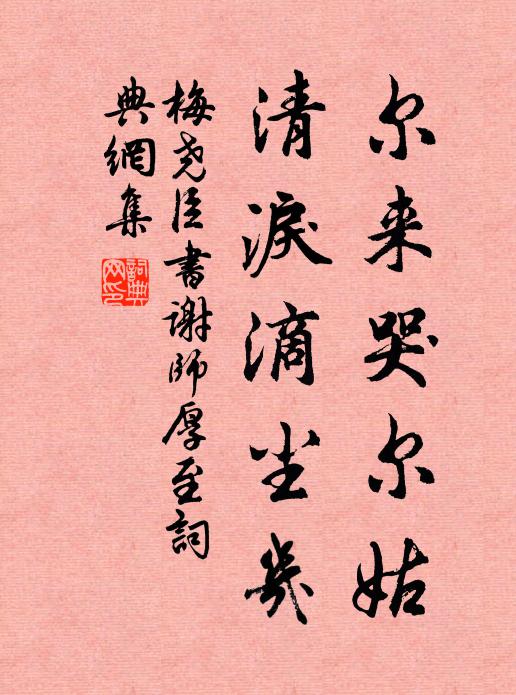 尔来哭尔姑
清淚滴尘几
梅尧臣書谢師厚至詞
典網集
詞典网印